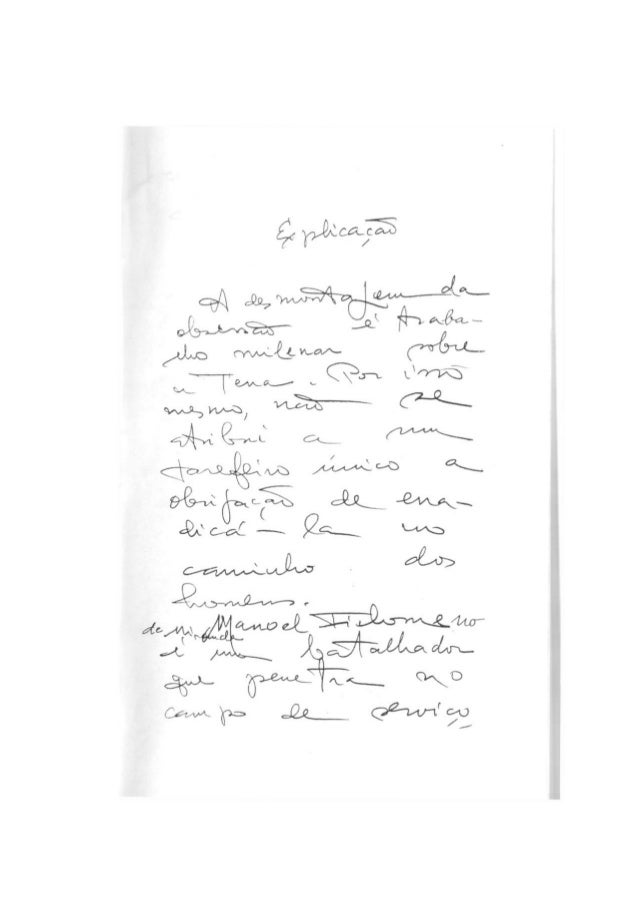 Explicação
A desmontagem da
obsessão é traba-
lho milenar sobre
a Terra. Por isso
mesmo, não se
atribui a um
tarefeiro único a
obrigação de erra-
dicá-la no
caminho dos
homens.
Manoel Filomeno
de Miranda
é um batalhador
que penetra no
campo de serviço